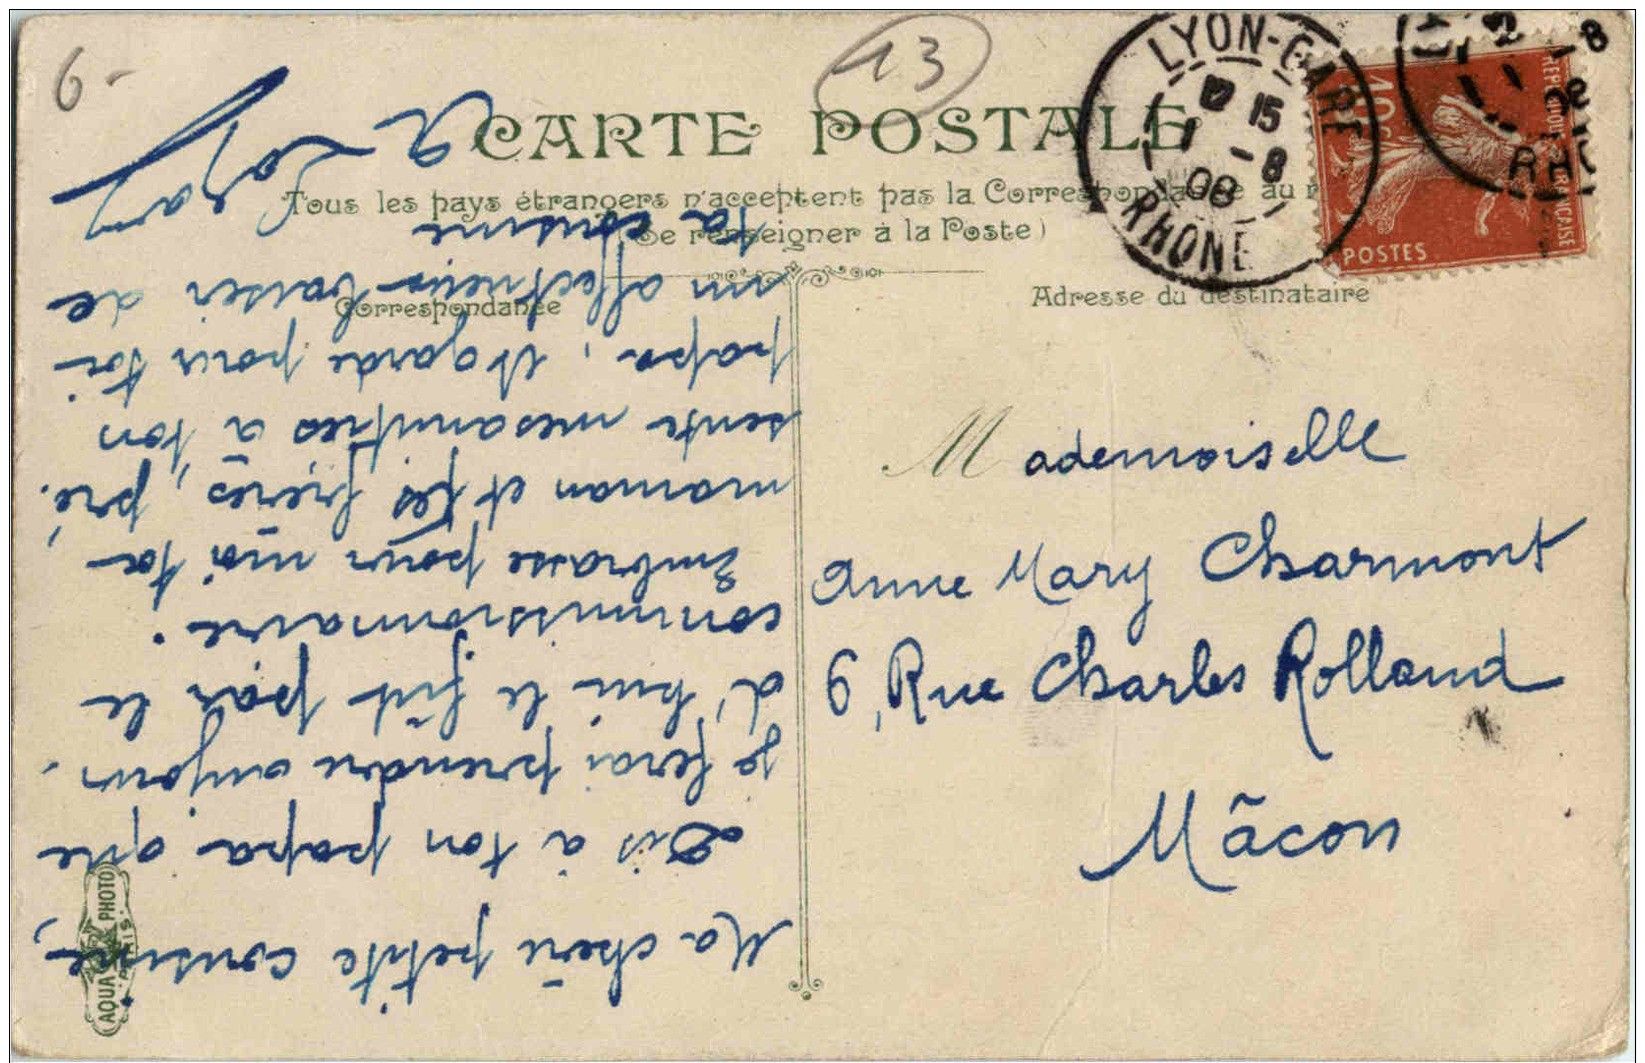 6-
13
CARTE POSTALE
Tous les pays étrangers n'acceptent pas la Correspondance au r
(Se renseigner à la Poste)
Correspondance
Adresse du destinataire
LYON-GARE
12 15
1 -8
08
RHONE
2 -8
08
RHO
REPUBLIQUE FRANÇAISE
10c
POSTES
Mademoiselle
Anne Mary Charmont
6, Rue Charles Rolland
Mâcon
Ma chère petite cousine,
Dis à ton papa que
je ferai prendre aujour-
d'hui le fût par le
commissionnaire.
Embrasse pour moi ta
maman et tes frères, pré-
sente mes amitiés à ton
papa, et garde pour toi
un affectueux baiser de
ta cousine
AQUA PHOTO
PARIS